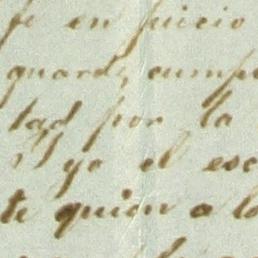 fe en juicio
guarde, cump
tad por la
yo el esc
te quien a lo